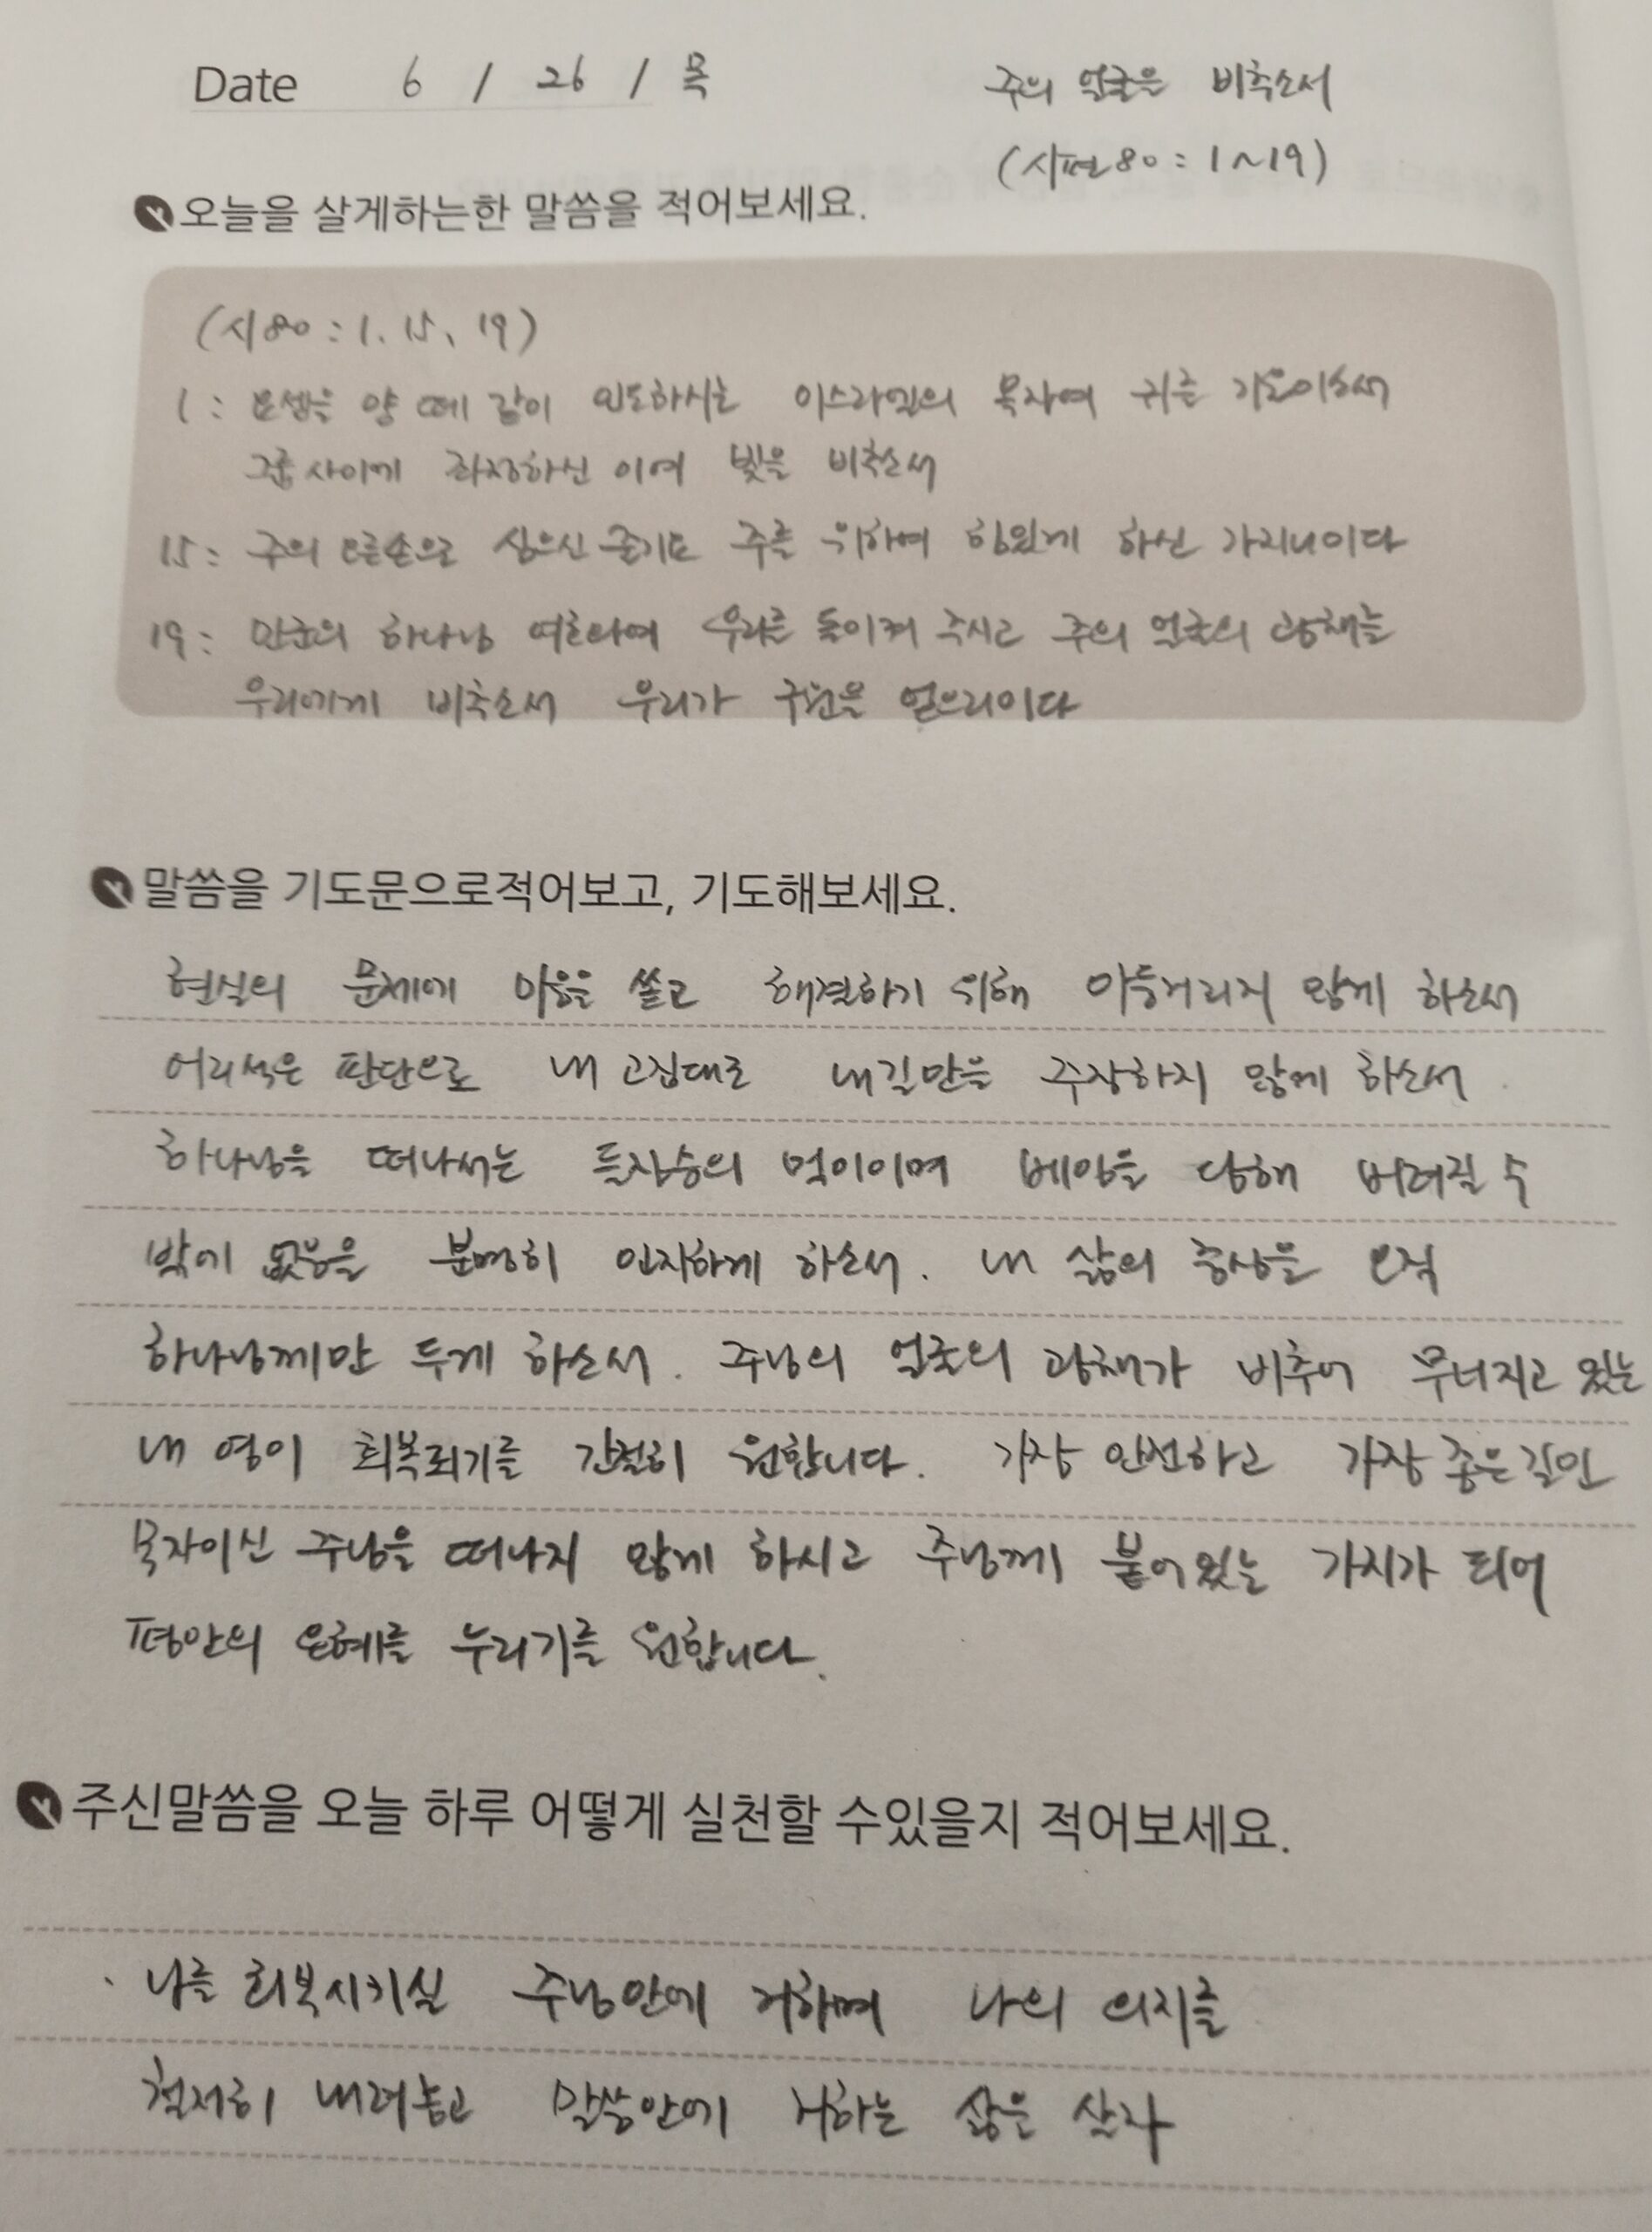 Date 6 / 26 / 목
주의 얼굴을 비추소서
(시편80 : 1~19)
오늘을 살게하는한 말씀을 적어보세요.
(시80 : 1. 15, 19)
1 : 요셉을 양 떼 같이 인도하시는 이스라엘의 목자여 귀를 기울이소서
그룹 사이에 좌정하신 이여 빛을 비추소서
15 : 주의 오른손으로 심으신 줄기요 주를 위하여 힘있게 하신 가지니이다
19 : 만군의 하나님 여호와여 우리를 돌이켜 주시고 주의 얼굴의 광채를
우리에게 비추소서 우리가 구원을 얻으리이다
말씀을 기도문으로적어보고, 기도해보세요.
현실의 문제에 마음을 쏟고 해결하기 위해 아등거리지 않게 하소서
어리석은 판단으로 내 고집대로 내길만을 주장하지 않게 하소서.
하나님을 떠나서는 들짐승의 먹이이며 베임을 당해 버려질 수
밖에 없음을 분명히 인지하게 하소서. 내 삶의 중심을 오직
하나님께만 두게 하소서. 주님의 얼굴의 광채가 비추어 무너지고 있는
내 영이 회복되기를 간절히 원합니다. 가장 안전하고 가장 좋은길인
목자이신 주님을 떠나지 않게 하시고 주님께 붙어있는 가지가 되어
평안의 은혜를 누리기를 원합니다.
주신말씀을 오늘 하루 어떻게 실천할 수있을지 적어보세요.
· 나를 회복시키실 주님안에 거하며 나의 의지를
철저히 내려놓고 말씀안에 거하는 삶을 살자